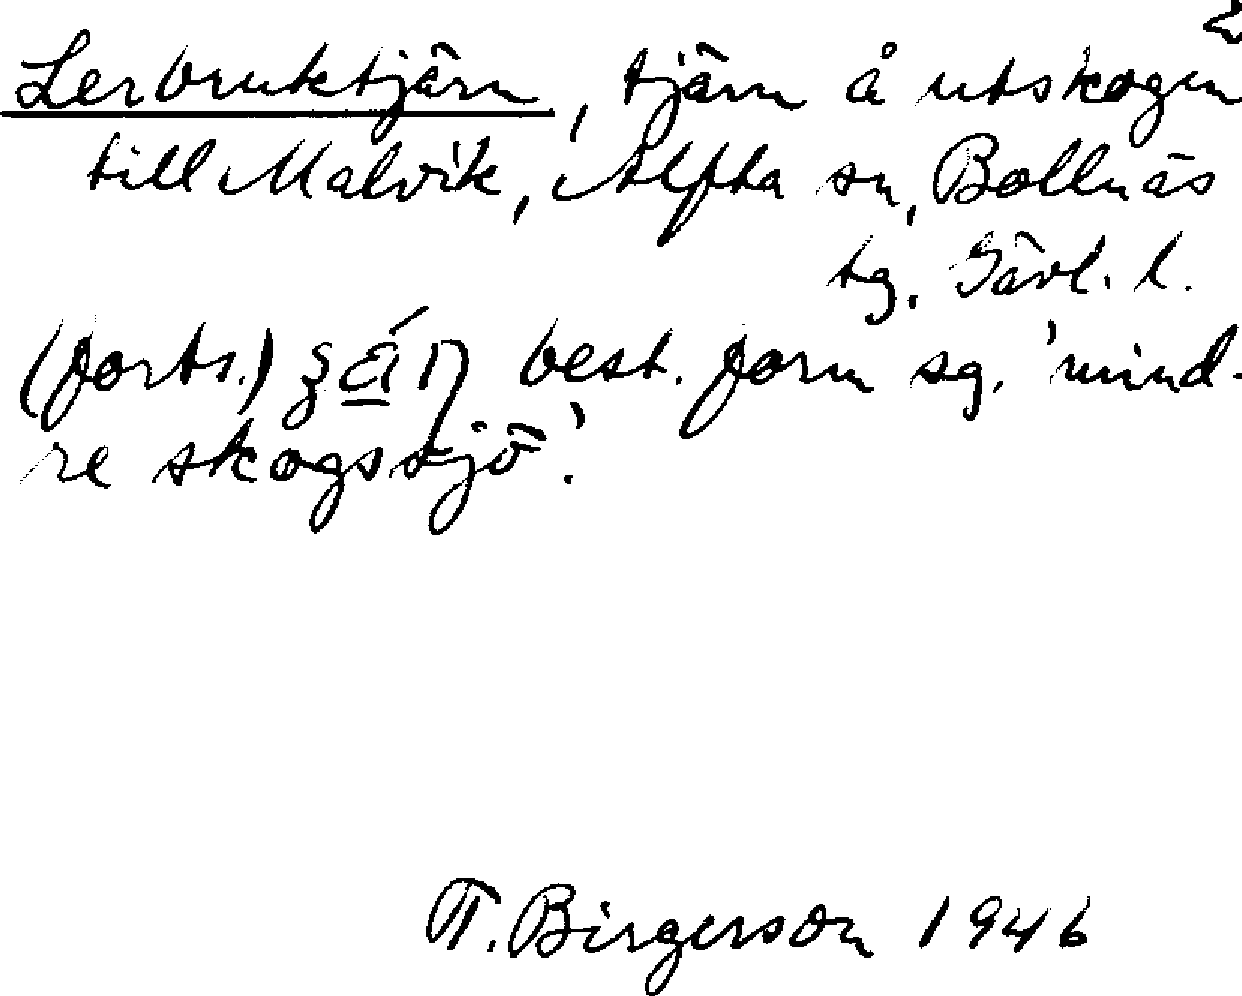 2
Lerbruktjärn, tjärn å utskogen
till Malvik, Alfta sn, Bollnäs
tg. Gävl. l.
(forts.) best. form sg. 'mind-
re skogssjö'.
T. Birgerson 1946